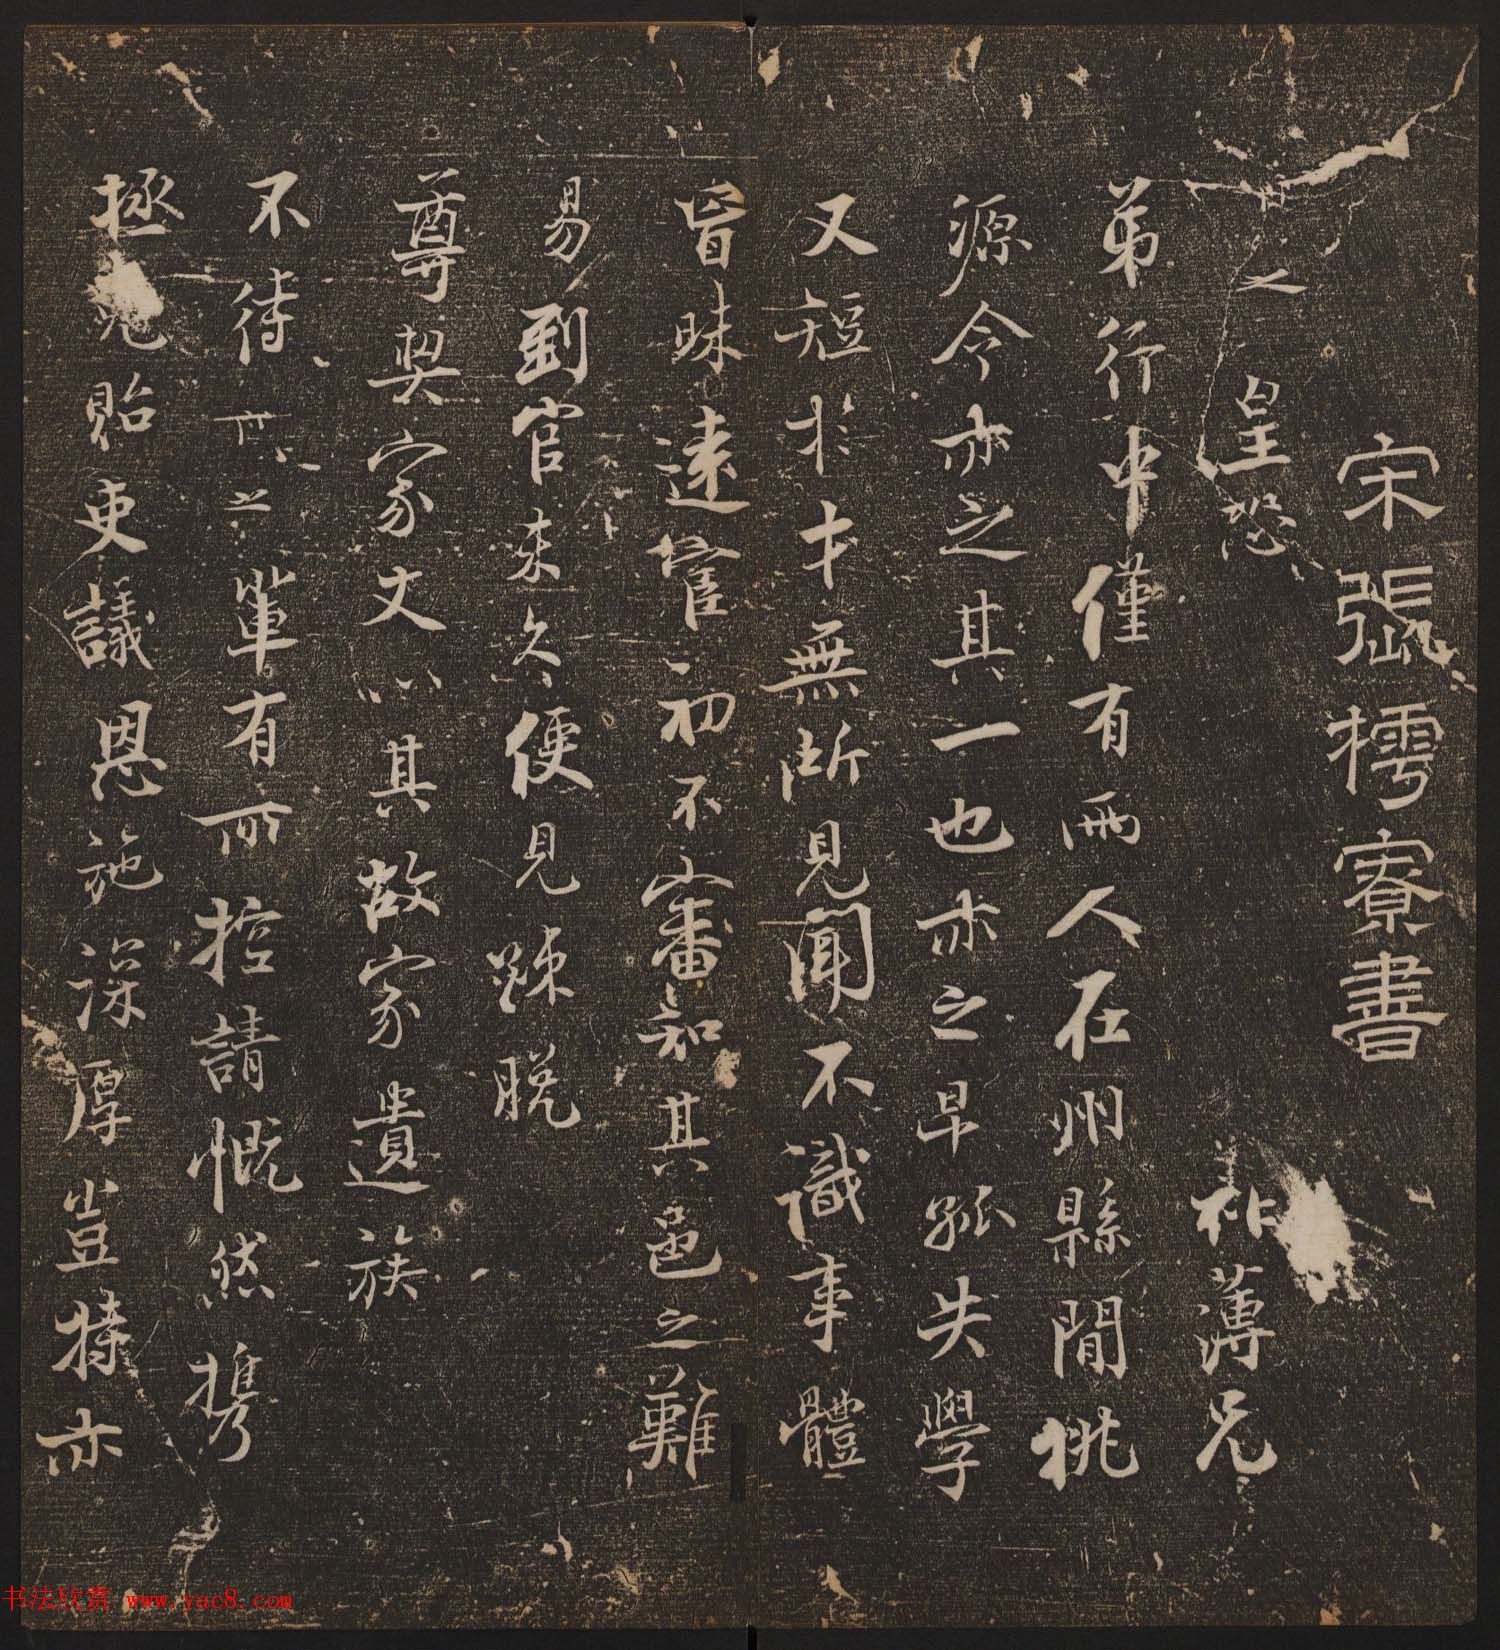 宋張樗寮書
即之皇恐 祚薄兄
弟行中僅有兩人在州縣間桃
源令亦之其一也亦之早孤失學
又短於才無所見聞不識事體
冒昧遠官初不審知其邑之難
易到官未久便見疎脫
尊契家丈以其故家遺族
不待即之輩有所控請慨然携
拯免貽吏議恩施深厚豈特亦
书法欣赏 www.yac8.com